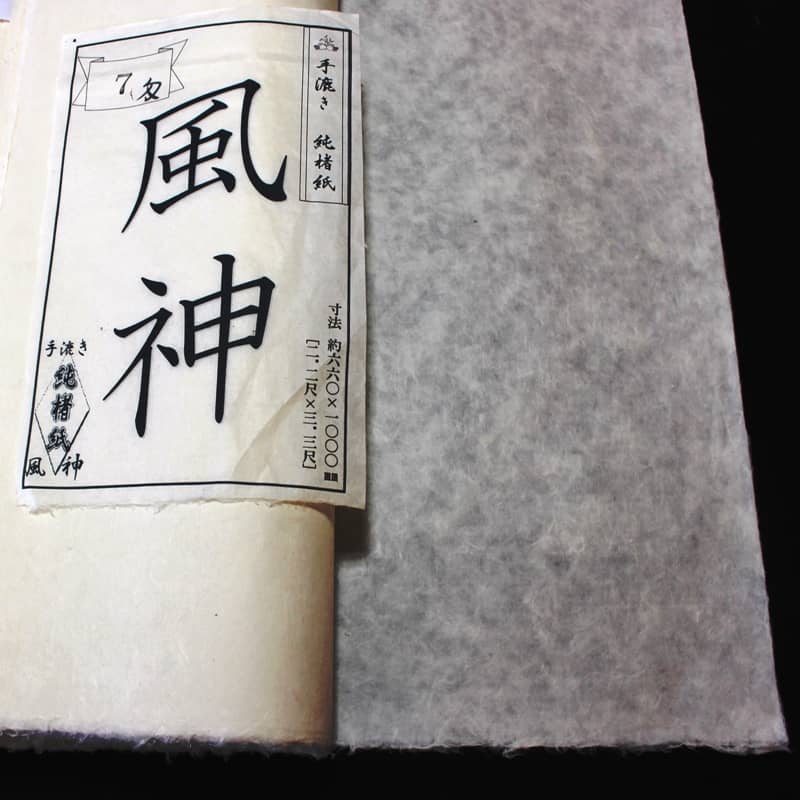 手漉き 純楮紙
7匁
風神
寸法 約六六〇×一〇〇〇㎜
［二．二尺×三．三尺］
手漉き
純楮紙
風神